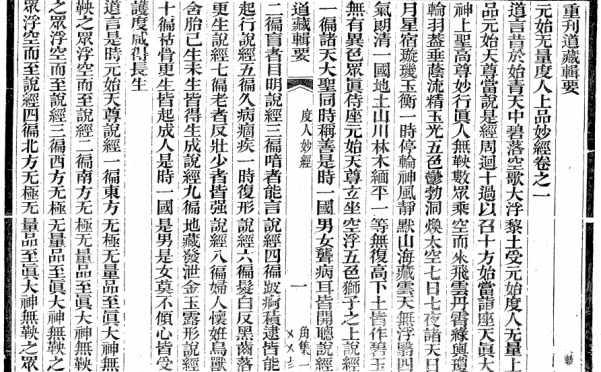 重刊道藏輯要
元始无量度人上品妙經卷之一
道言昔於始青天中碧落空歌大浮黎土受元始度人无量上
品元始天尊當說是經周迴十過以召十方始當詣座天眞大
神上聖高尊妙行眞人無鞅數眾乘空而來飛雲丹霄綠輿瓊
輪羽蓋垂蔭流精玉光五色鬱勃洞煥太空七日七夜諸天日
月星宿璇璣玉衡一時停輪神風靜默山海藏雲天無浮翳四
氣朗清一國地土山川林木緬平一等無復高下土皆作碧玉
無有異色眾眞侍座元始天尊玄坐空浮五色獅子之上說經
一徧諸天大聖同時稱善是時一國男女聾病耳皆開聰說經
道藏輯要
度人妙經
一
角集一
二徧盲者目明說經三徧喑者能言說經四徧跛痾積逮皆能
起行說經五徧久病痼疾一時復形說經六徧髮白反黑齒落
更生說經七徧老者反壯少者皆强說經八徧婦人懷妊鳥獸
含胎已生未生皆得生成說經九徧地藏發泄金玉露形說經
十徧枯骨更生皆起成人是時一國是男是女莫不傾心皆受
護度咸得長生
道言是時元始天尊說經一徧東方无極无量品至眞大神無
鞅之眾浮空而至說經二徧南方无極无量品至眞大神無鞅
之眾浮空而至說經三徧西方无極无量品至眞大神無鞅之
眾浮空而至說經四徧北方无極无量品至眞大神無鞅之眾